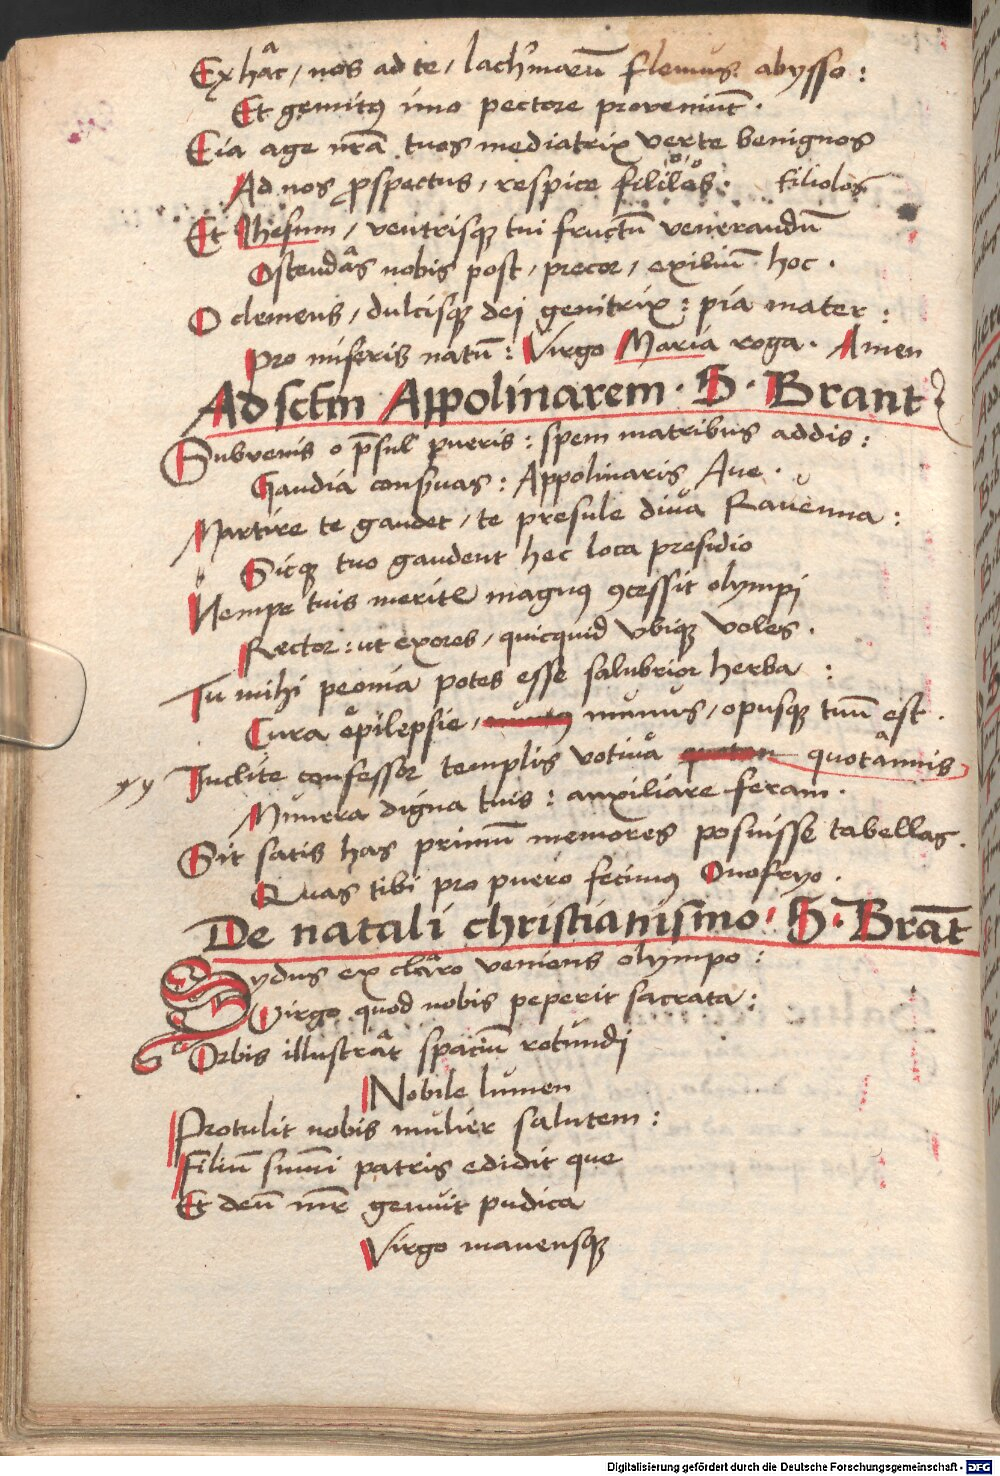 Ex hac / nos ad te / lachrimarũ flemus abysso :
Et gemitꝰ imo pectore proveniũt .
Eia age nr̃a tuos mediatrix verte benignos
Ad nos ꝓspectus / respice : filiolos
Et Jhesum / ventrisqꝫ tui fructũ venerandũ
Ostendas nobis post / precor / exiliũ hoc .
O clemens / dulcisqꝫ dei genitrix : pia mater :
Pro miseris natũ : Virgo Maria roga . Amen
Ad sctm̃ Appolinarem . S . Brant
Subvenis o p̃sul pueris : spem matribus addis :
Gaudia conẜuas : Appolinaris Aue .
Martire te gaudet / te presule diva Ravenna :
Sicqꝫ tuo gaudent hec loca presidio
Nempe tuis meritꝭ magnꝰ ꝯcessit olympi
Rector : ut exores / quicquid vbiqꝫ voles .
Tu mihi peonia potes esse salubrior herba :
Cura epilepsie / munus / opusqꝫ tuũ est .
Inclite confessor templis votiva quotannis
Munera digna tuis : auxiliare feram .
Sit satis has primũ memores posuisse tabellas .
Quas tibi pro puero fecimꝰ Onofryo .
De natali christianismo . S . Brãt
Sydus ex claro veniens olympo :
Virgo quod nobis peperit sacrata :
Orbis illustrat spaciũ rotundi
Nobile lumen
Protulit nobis mulier salutem :
Filiũ summi patris edidit que
Et deũ mr̃e genuit pudica
Virgo manensqꝫ
Digitalisierung gefördert durch die Deutsche Forschungsgemeinschaft - DFG